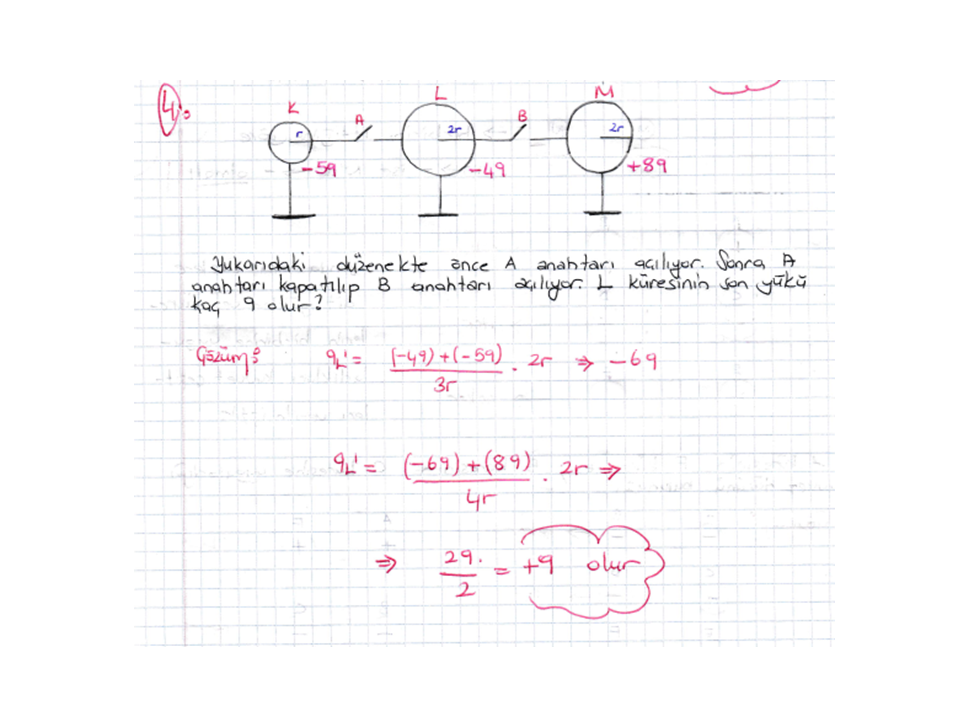 4.
K A L B M
r 2r 2r
-5q -4q +8q
Yukarıdaki düzenekte önce A anahtarı açılıyor. Sonra A
anahtarı kapatılıp B anahtarı açılıyor. L küresinin son yükü
kaç q olur?
Çözüm: qL' = (-4q)+(-5q) / 3r . 2r ⇒ -6q
qL' = (-6q)+(8q) / 4r . 2r ⇒
⇒ 2q. / 2 = +q olur